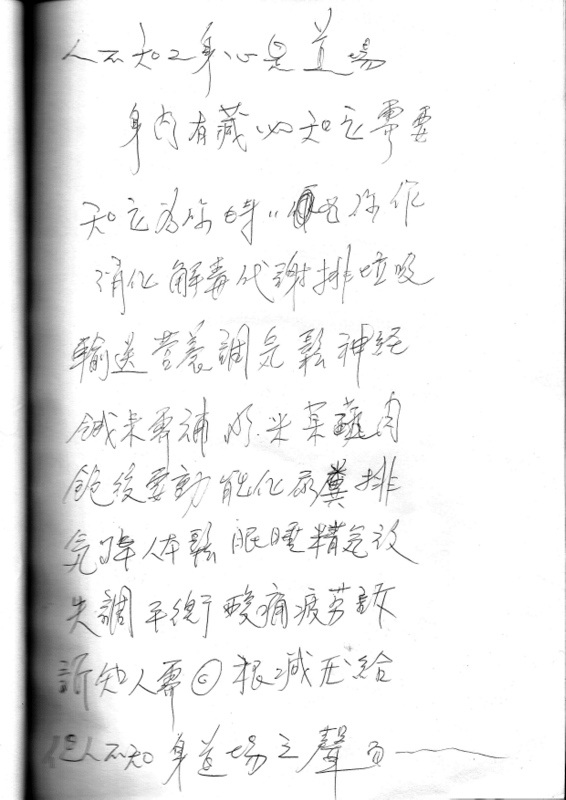 人不知之身心是道場
身內有藏必知它需要
知它為你時時 你作
消化解毒代謝排垃圾
輸送营養調氣鬆神經
餓來需補 米菜 肉
飽後要動能化尿糞排
氣降人体鬆眠睡精氣放
失調平衡酸痛疲劳
訴知人需 根 減 給
但人不知身道場之聲